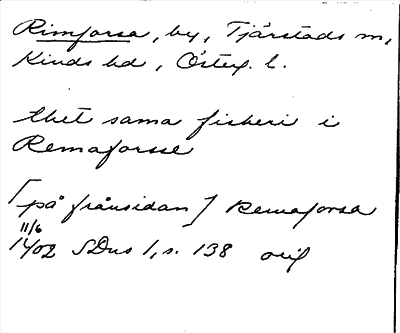 Rimforsa, by, Tjärstads sn,
Kinds hd, Österg. l.
thet sama fiskeri i
Remaforsse
[på frånsidan] Remaforsa
11/6
1402 SDns 1, s. 138 orig